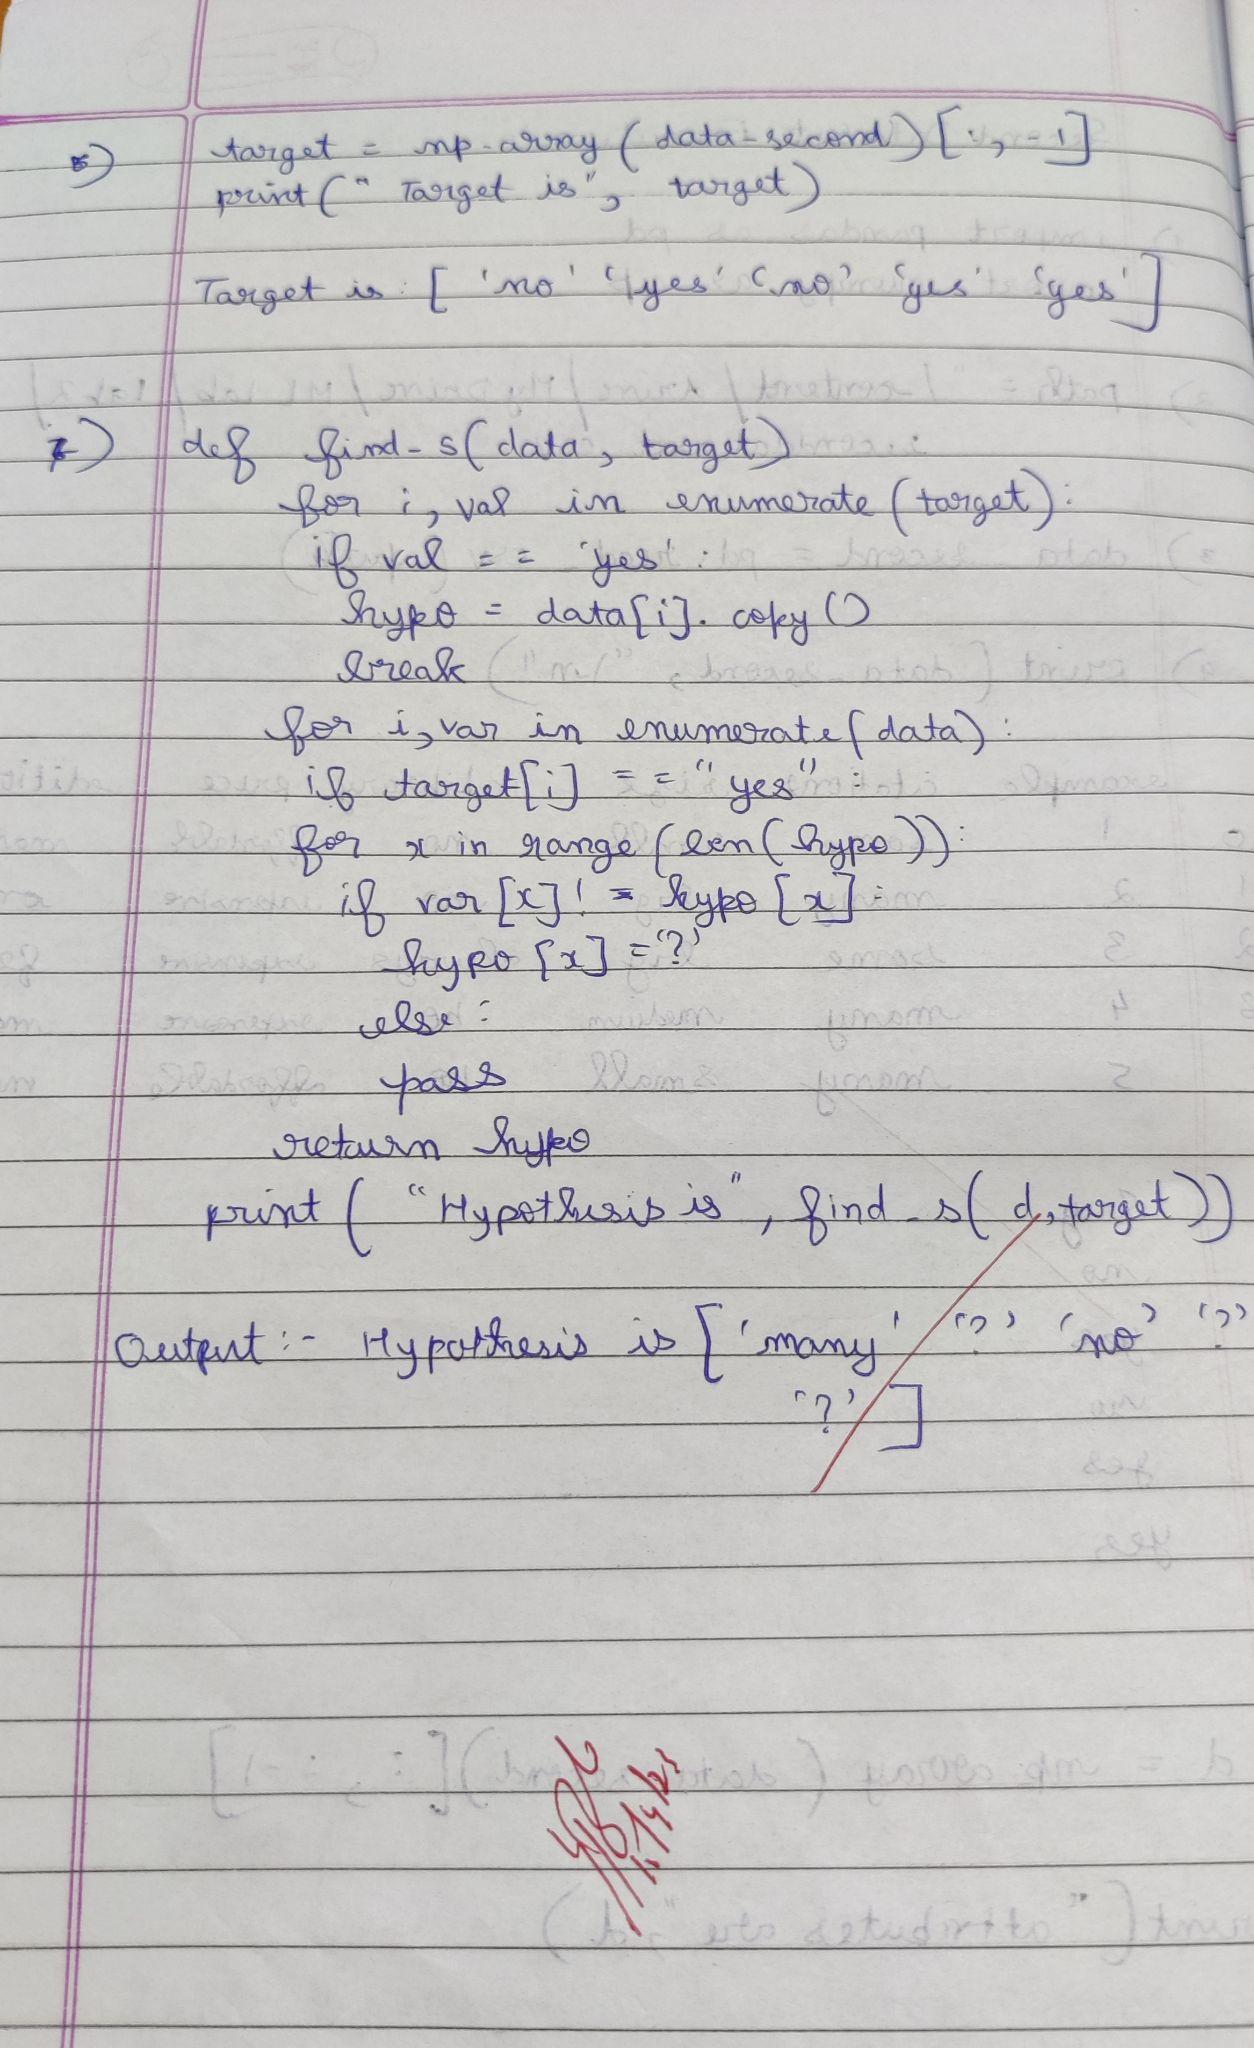 6) target = np.array(data-second)[:,-1]
print("Target is", target)
Target is: ['no' 'yes' 'no' 'yes' 'yes']
7) def find-s(data, target)
for i, val in enumerate(target):
if val == 'yes':
hypo = data[i].copy()
break
for i, var in enumerate(data):
if target[i] == "yes":
for x in range(len(hypo)):
if var[x]! = hypo[x]:
hypo[x] = '?'
else:
pass
return hypo
print("Hypothesis is", find_s(d, target))
Output:- Hypothesis is ['many' '?' 'no' '?'
'?']